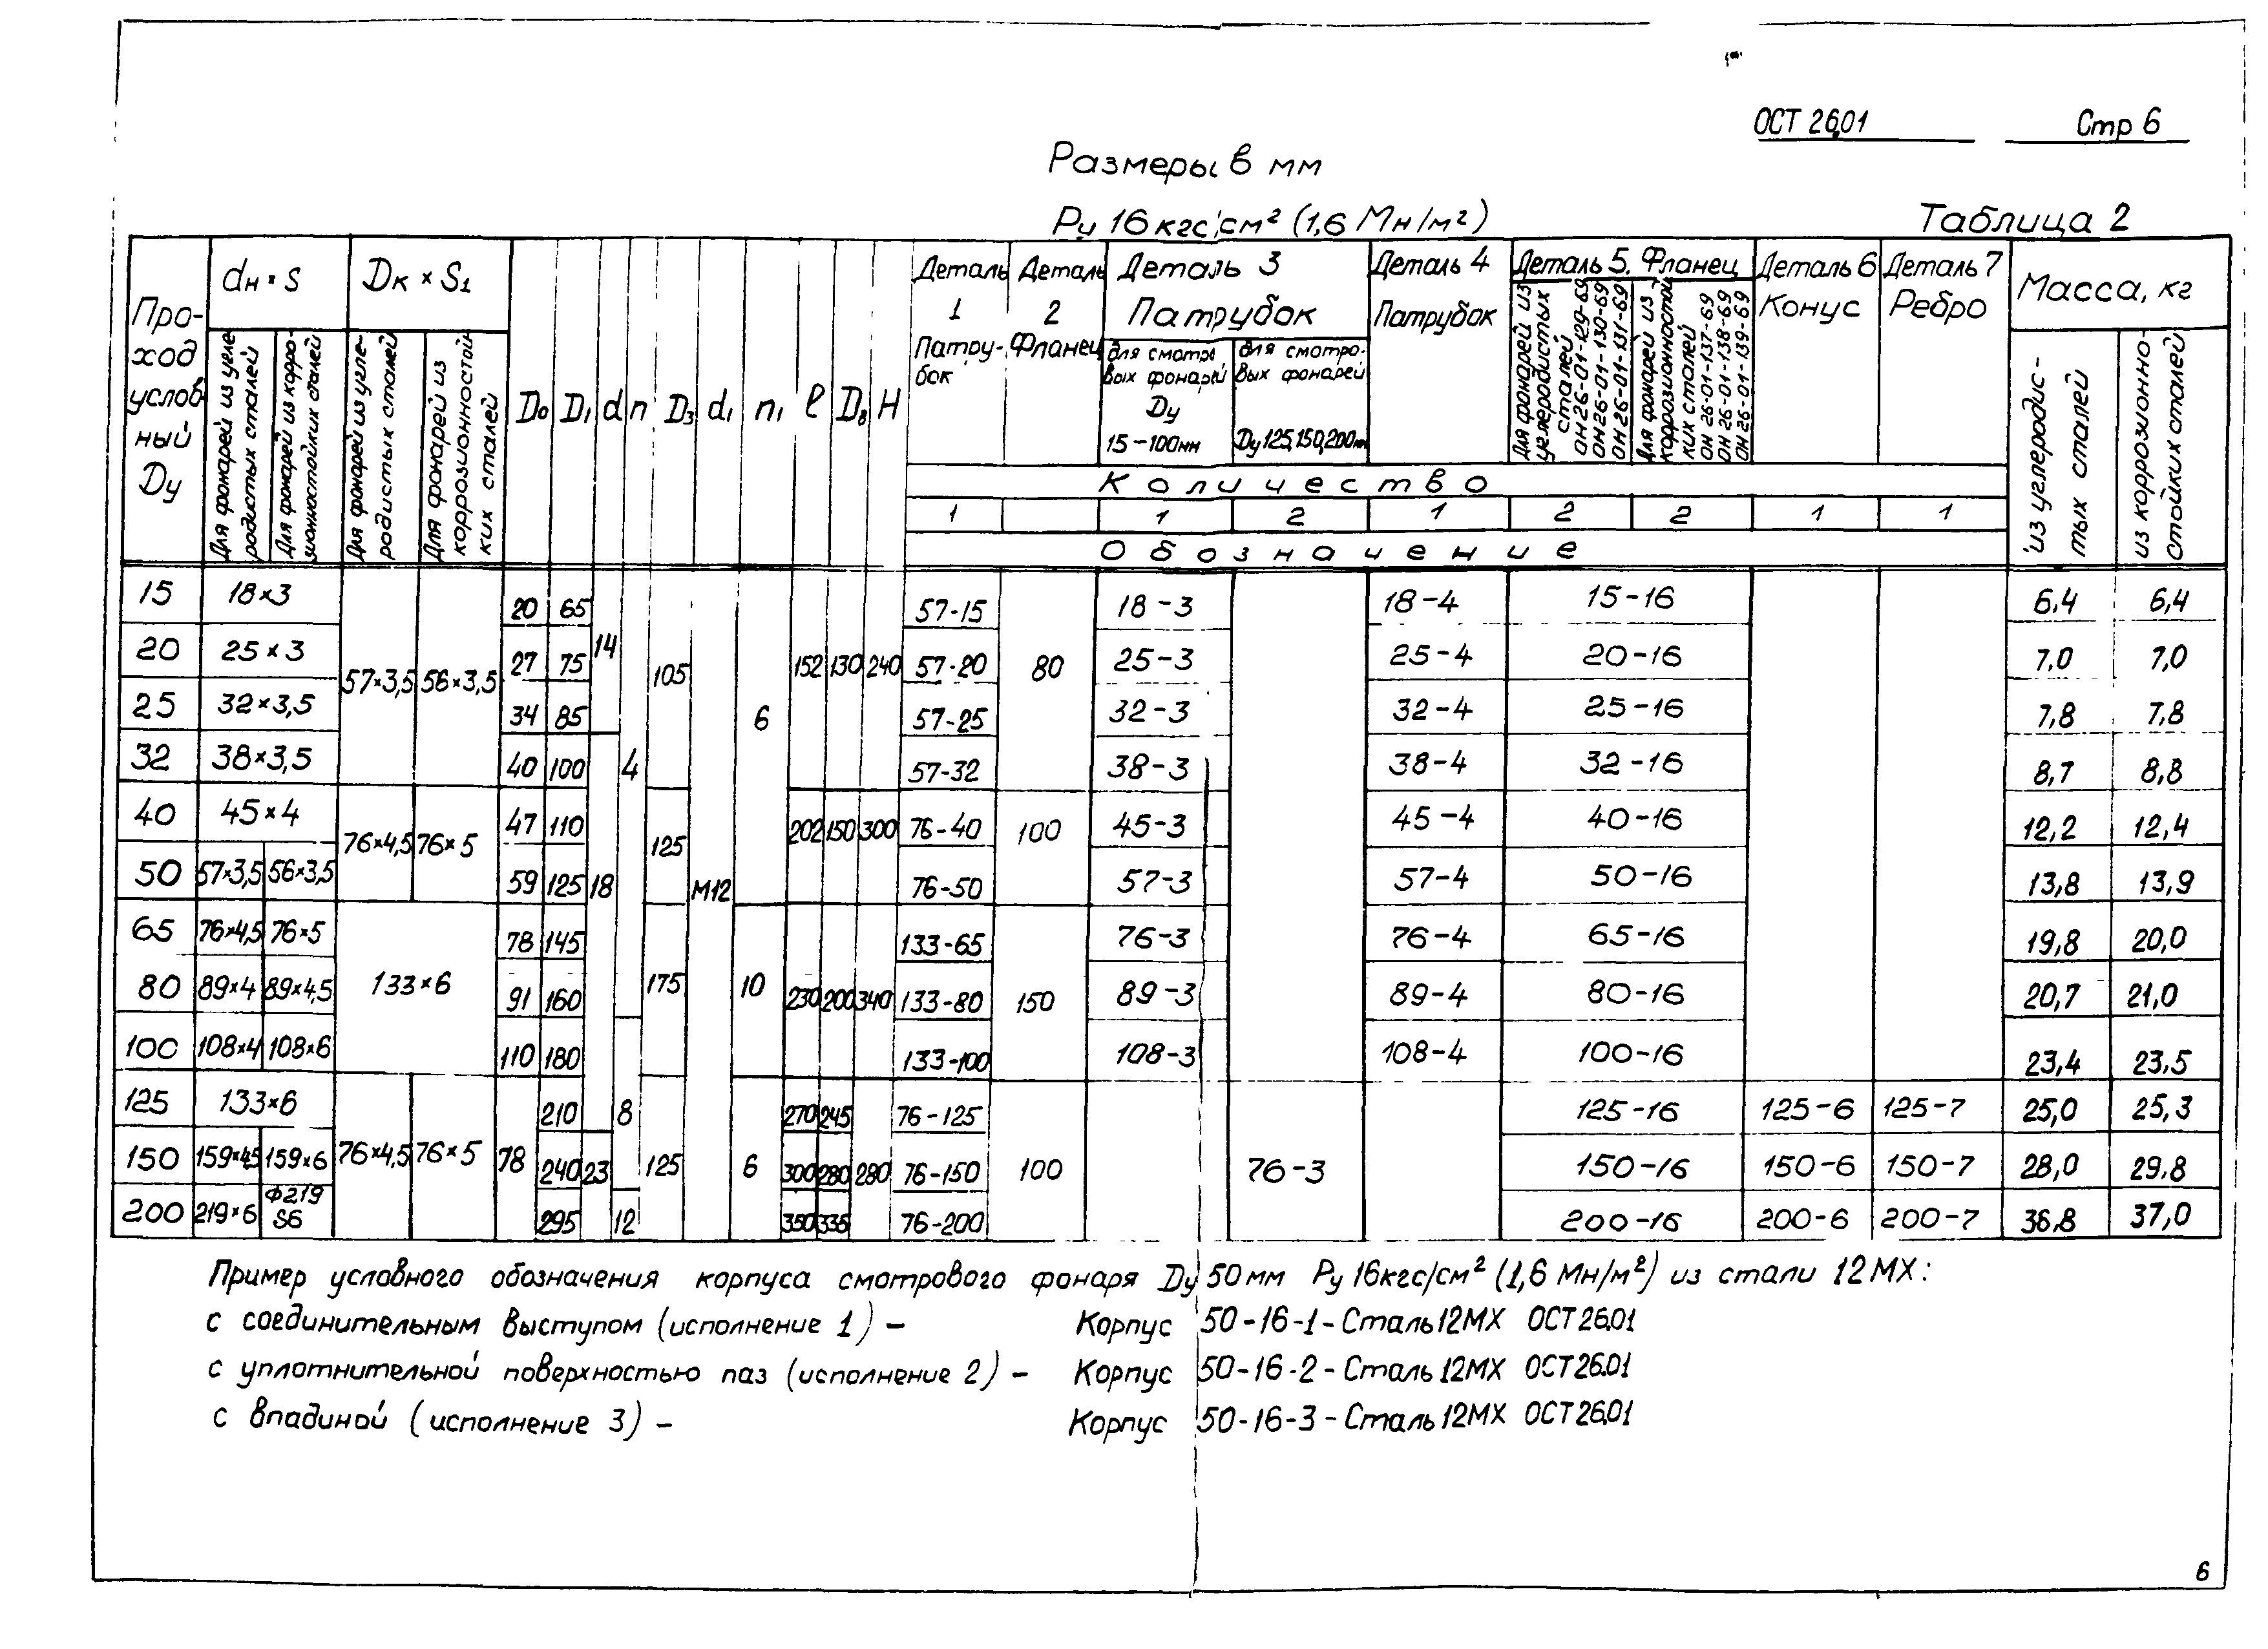 ОСТ 26.01 Стр 6
Размеры в мм
Ру 16 кгс/см² (1,6 Мн/м²) Таблица 2
Проход условный Dу
dн × S
Для фонарей из углеродистых сталей
Для фонарей из коррозионностойких сталей
Dк × S₁
Для фонарей из углеродистых сталей
Для фонарей из коррозионностойких сталей
D₀ D₁ d n D₃ d₁ n₁ ℓ D₈ H
Деталь 1 Патрубок
Деталь 2 Фланец
Деталь 3 Патрубок
для смотровых фонарей Dу 15-100мм
для смотровых фонарей Dу 125,150,200мм
Деталь 4 Патрубок
Деталь 5. Фланец
Для фонарей из углеродистых сталей ОН 26-01-129-69 ОН 26-01-130-69 ОН 26-01-131-69
Для фонарей из коррозионностойких сталей ОН 26-01-137-69 ОН 26-01-138-69 ОН 26-01-139-69
Деталь 6 Конус
Деталь 7 Ребро
Масса, кг
из углеродистых сталей
из коррозионностойких сталей
Количество
1 1 2 1 2 2 1 1
Обозначение
15 18×3 57×3,5 56×3,5 20 65 14 4 105 М12 6 152 130 240 57-15 80 18-3 18-4 15-16 6,4 6,4
20 25×3 27 75 57-20 25-3 25-4 20-16 7,0 7,0
25 32×3,5 34 85 57-25 32-3 32-4 25-16 7,8 7,8
32 38×3,5 40 100 18 57-32 38-3 38-4 32-16 8,7 8,8
40 45×4 76×4,5 76×5 47 110 125 202 150 300 76-40 100 45-3 45-4 40-16 12,2 12,4
50 57×3,5 56×3,5 59 125 76-50 57-3 57-4 50-16 13,8 13,9
65 76×4,5 76×5 133×6 78 145 175 10 230 200 340 133-65 150 76-3 76-4 65-16 19,8 20,0
80 89×4 89×4,5 91 160 133-80 89-3 89-4 80-16 20,7 21,0
100 108×4 108×6 110 180 8 133-100 108-3 108-4 100-16 23,4 23,5
125 133×6 76×4,5 76×5 78 210 125 6 270 245 280 76-125 100 76-3 125-16 125-6 125-7 25,0 25,3
150 159×4,5 159×6 240 23 300 280 76-150 150-16 150-6 150-7 28,0 29,8
200 219×6 Ф219 S6 295 12 350 335 76-200 200-16 200-6 200-7 36,8 37,0
Пример условного обозначения корпуса смотрового фонаря Dу 50мм Ру 16кгс/см² (1,6 Мн/м²) из стали 12МХ:
с соединительным выступом (исполнение 1) – Корпус 50-16-1-Сталь12МХ ОСТ26.01
с уплотнительной поверхностью паз (исполнение 2) – Корпус 50-16-2-Сталь12МХ ОСТ26.01
с впадиной (исполнение 3) – Корпус 50-16-3-Сталь12МХ ОСТ26.01
6